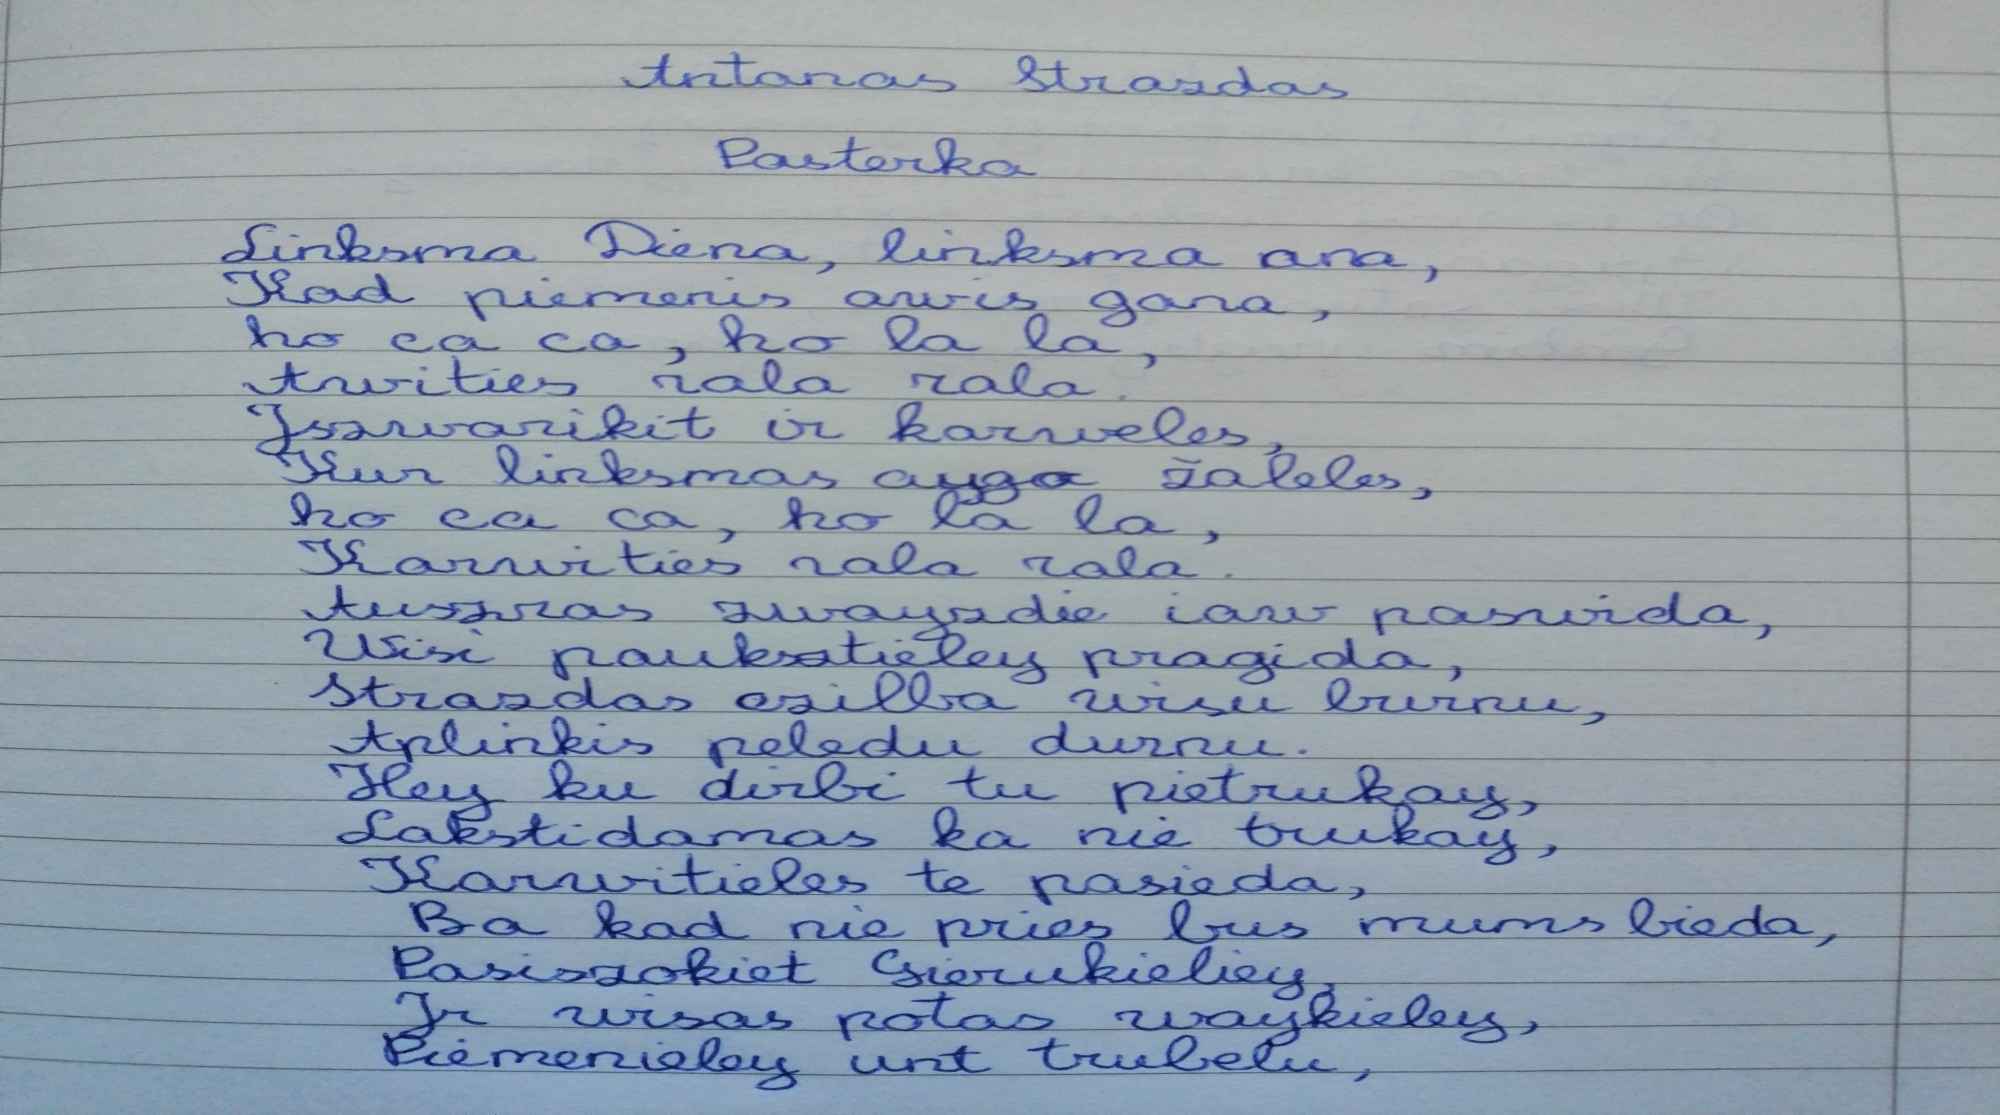 Antanas Strazdas
Pasterka
Linksma Diena, linksma ana,
Kad piemenis awis gana,
ho ca ca, ho la la,
Awities rala rala.
Jszwarikit ir karweles,
Kur linksmas auga žaleles,
ho ca ca, ho la la,
Karwities rala rala.
Auszras zwayzdie iaw paswida,
Wisi pauksztieley pragida,
Strazdas czilba wisu burnu,
Aplinkis peledu durnu.
Hey ku dirbi tu pietrukay,
Lakstidamas ka nie trukay,
Karwitieles te pasieda,
Ba kad nie pries bus mums bieda,
Pasiszokiet Gierukieliey,
Jr wisas potas waykieley,
Piemenieley unt trubelu,